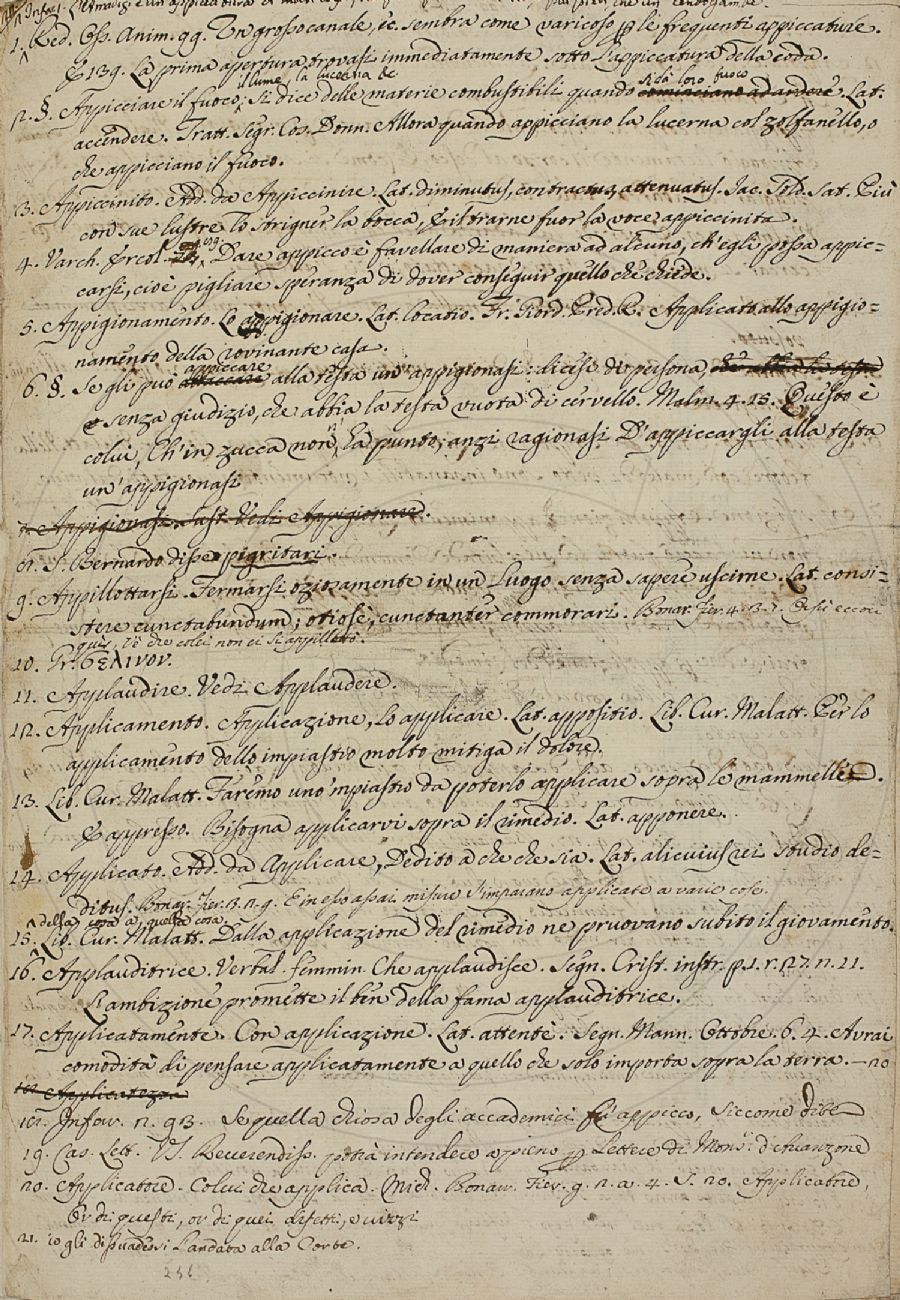 1. Red. Oss. Anim. 99. Un grosso canale, ec. sembra come varicoso per le frequenti appiccature.
E 139. La prima apertura trovasi immediatamente sotto l'appiccatura della coda.
il lume, la lucerna ec si dà loro fuoco
2. §. Appicciare il fuoco; si dice delle materie combustibili quando cominciano ad ardere. Lat.
accendere. Tratt. Segr. Cos. Donn. Allora quando appicciano la lucerna col zolfanello, o
che appicciano il fuoco.
3. Appiccinito. Add. da Appiccinire. Lat. diminutus, contractus, attenuatus. Jac. Sold. Sat. Più
con sue lustre lo strigner la bocca, E il trarne fuor la voce appiccinita.
4. Varch. Ercol. 99. Dare appicco è favellare di maniera ad alcuno, ch'egli possa appic=
carsi, cioè pigliare speranza di dover conseguir quello che chiede.
5. Appigionamento. Lo appigionare. Lat. locatio. Fr. Giord. Pred. R. Applicato allo appigio=
namento della rovinante casa.
appiccare
6. §. Se gli può attaccare alla testa un' appigionasi: dicesi di persona, che abbia la testa
e senza giudizio, che abbia la testa vuota di cervello. Malm. 4. 15. Questo è
colui, Ch'in zucca non n'ha punto; anzi ragionasi D'appiccargli alla testa
un'appigionasi
7. Appigionasi. Sust. Vedi Appigionare.
8. S. Bernardo disse pigritari.
9. Appillottarsi. Fermarsi oziosamente in un Luogo senza sapere uscirne. Lat. consi=
stere cunctabundum; otiosè, cunctanter commorari. Bonar. Fier. 4. 3. 7. Oesù eccoci
quì, Vè che colei non ci si appillotti.
10. Gr. σέλινον.
11. Applaudire. Vedi Applaudere.
12. Applicamento. Applicazione, Lo applicare. Lat. appositio. Lib. Cur. Malatt. Per lo
applicamento dello impiastro molto mitiga il dolore.
13. Lib. Cur. Malatt. Faremo uno 'mpiastro da poterlo applicare sopra le mammelle.
E appresso. Bisogna applicarvi sopra il rimedio. Lat. apponere.
14. Applicato. Add. da Applicare, Dedito a che che sia. Lat. alicuius rei studio de=
ditus. Bonar. Fier. 3. 2. 9. E in esso assai misure S'imparano applicate a varie cose.
della cosa a quella cosa.
15. Lib. Cur. Malatt. Dalla applicazione del rimedio ne pruovano subito il giovamento.
16. Applauditrice. Verbal. femmin. Che applaudisce. Segn. Crist. instr. p. 1. r. 27. n. 21.
L'ambizione promette il ben della fama applauditrice.
17. Applicatamente. Con applicazione. Lat. attentè. Segn. Mann. Ottobre. 6. 4. Avrai
comodità di pensare applicatamente a quello che solo importa sopra la terra. — 20
18. Applicatezza
18. Infar. n. 93. Se quella chiosa degli accademici fu appicco, siccome dite
19. Cas. Lett. VS. Reverendiss. potrà intendere appieno per Lettere di Mons.r d'Avanzone
20. Applicatore. Colui che applica. Mich. Bonar. Fier. g. 2. a. 4. S. 20. Applicatore,
Or di questi, or di quei difetti, e vizzi
21. io gli dissuadessi l'andata alla Corte.